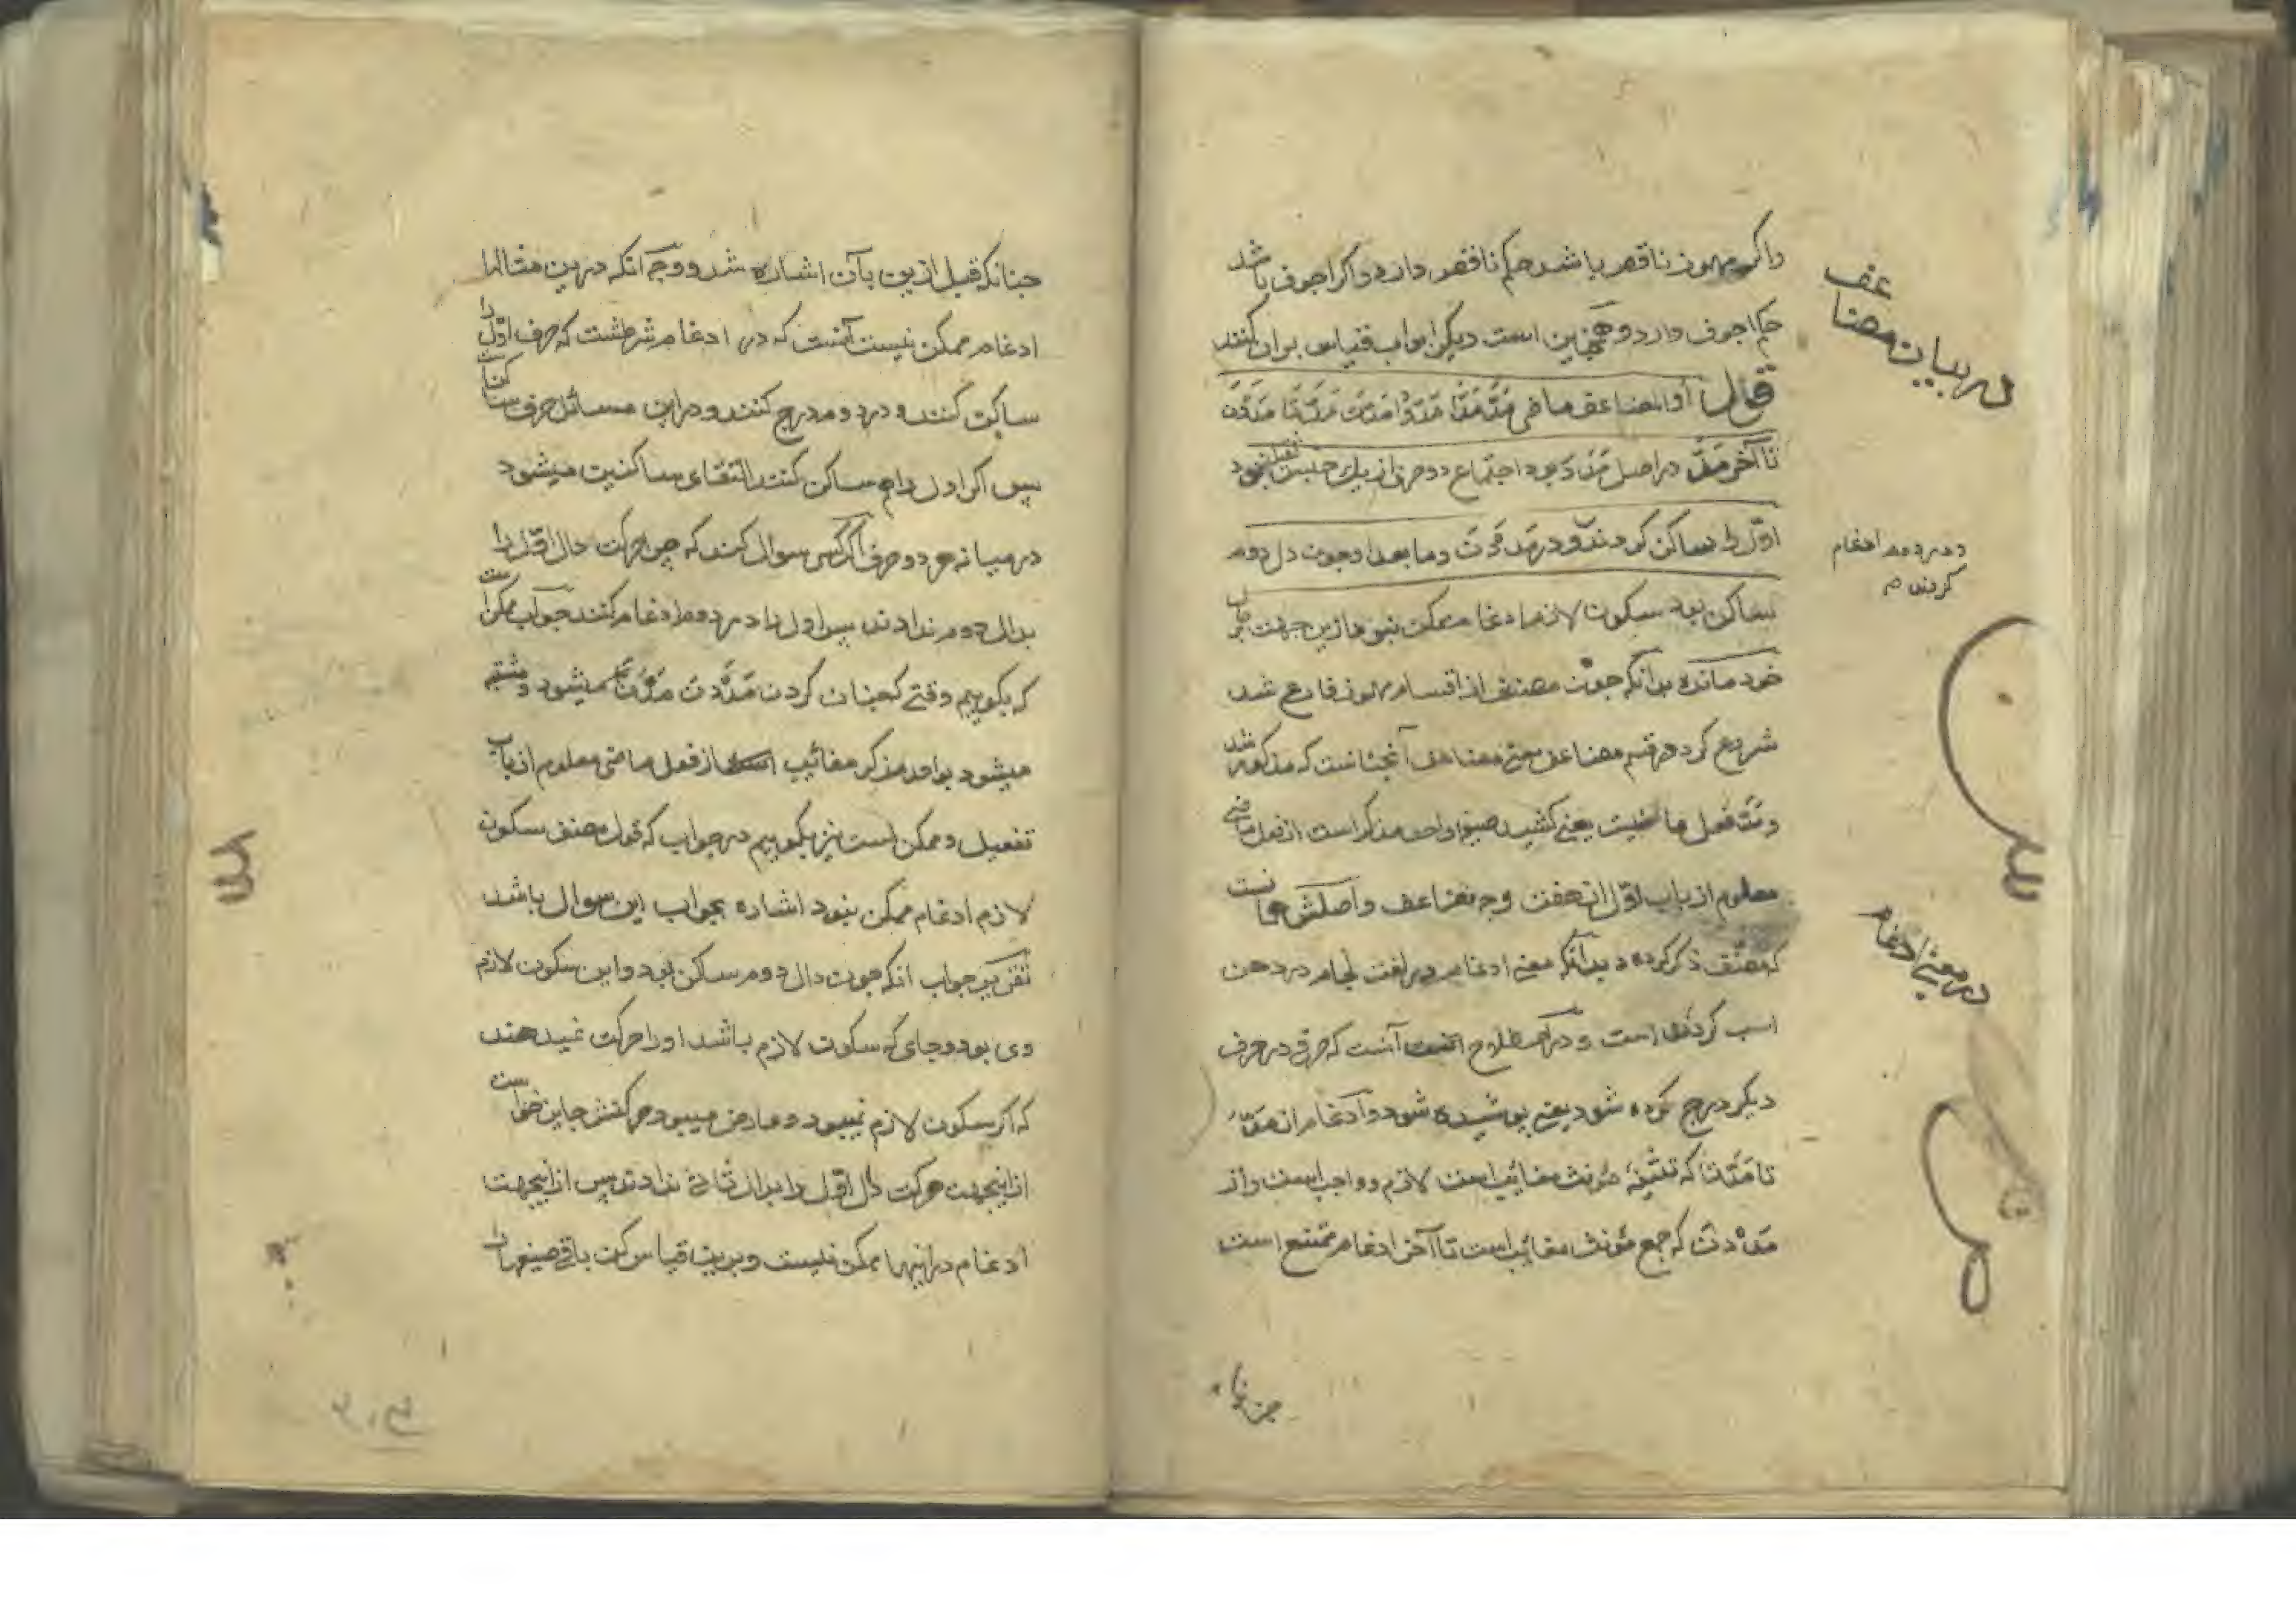 واکر مهموز ناقص باشد حکم ناقص دارد واکر اجوف باشد
حکم اجوف دارد وهمچنین است دیکر ابواب قیاس بران کنند
قال اما المضاعف ماضی مَدَّ مَدَّا مَدُّوا مَدَّتْ مَدَّتَا مَدَدْنَ
تا آخر مَدَّ دراصل مَدَدَ بود اجتماع دو حرف از یك جنس ثقیل بود
اوّل را ساکن کردند ودر مَدَدْنَ وما بعد او چون دال دوم
ساکن بود سکون لازم ادغام ممکن نبود ازین جهت بر حال
خود مانده بدآنکه چون مصنف از اقسام مهموز فارغ شد
شروع کرد در قسم مضاعف معنی مضاعف آنچنانست که مذکور شد
ومَدَّ فعل ماضیست یعنی کشید صیغه واحد مذکر است از فعل ماضی
معلوم از باب اوّل از هفت وجه مضاعف واصلش همانست
که مصنّف ذکر کرده وبدآنکه معنی ادغام در لغت لجام در دهن
اسب کردن است ودر اصطلاح آنست که حرفی در حرف
دیکر درج کرده شود یعنی پوشیده شود وادغام از مَدَّ
تا مَدَّتَا که تثنیهٔ مؤنث مغائب است لازم وواجب است واز
مَدَدْنَ که جمع مؤنث مغائب است تا آخر ادغام ممتنع است
در بیان مضاعف
ودر دوم ادغام
کردند
در معنی ادغام
چنانکه
چنانکه قبل ازین بآن اشاره شد ووجه آنکه درین مثالها
ادغام ممکن نیست آنست که در ادغام شرطست که حرف اوّل را
ساکن کنند ودر دوم درج کنند ودراین مسائل حرف ساکن است
پس اکر اول را هم ساکن کنند التقای ساکنین میشود
در میانه هر دو حرف اکر کسی سوال کند که چرا حرکت دال اوّل را
بدال دوم ندادند پس اول را در دوم ادغام کنند جواب ممکن است
که بکوییم وقتی که چنان کردند مَدَدْنَ مَدَّنَ میشود ومشتبه
میشود بواحد مذکر مغائب از فعل ماضی معلوم از باب
تفعیل وممکن است نیز بکوییم در جواب که قول مصنف سکون
لازم ادغام ممکن نبود اشاره بجواب این سوال باشد
تقریر جواب انکه چون دال دوم ساکن بود واین سکون لازم
وی بود وجای که سکون لازم باشد اورا حرکت نمیدهند
که اکر سکون لازم نمیبود وعارض میبود حرکتش جایز خواست
ازاینجهت حرکت دال اوّل را بدال ثانی ندادند پس ازاینجهت
ادغام دراینها ممکن نیست وبرین قیاس کن باقی صیغها را